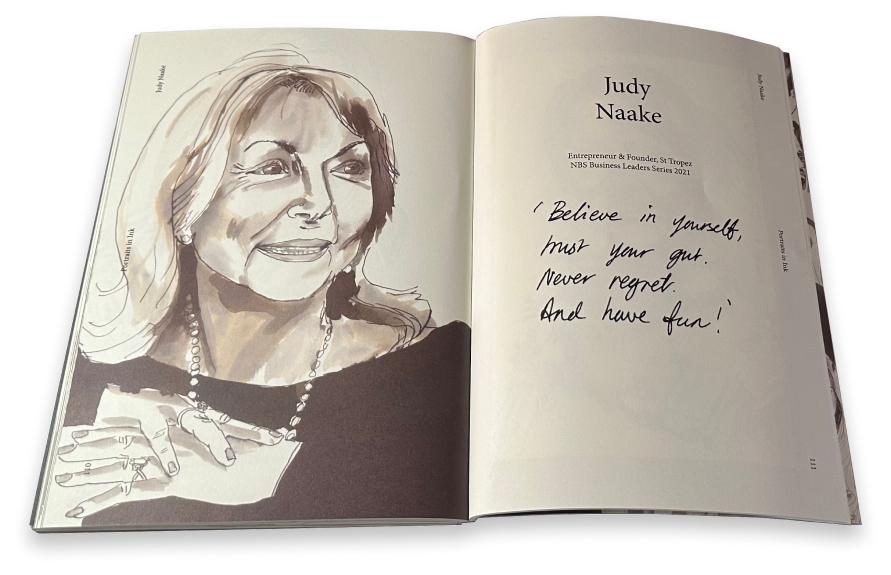 Judy Naake
Portraits in Ink
110
Judy
Naake
Entrepreneur & Founder, St Tropez
NBS Business Leaders Series 2021
'Believe in yourself,
trust your gut.
Never regret.
And have fun!'
Judy Naake
Portraits in Ink
111